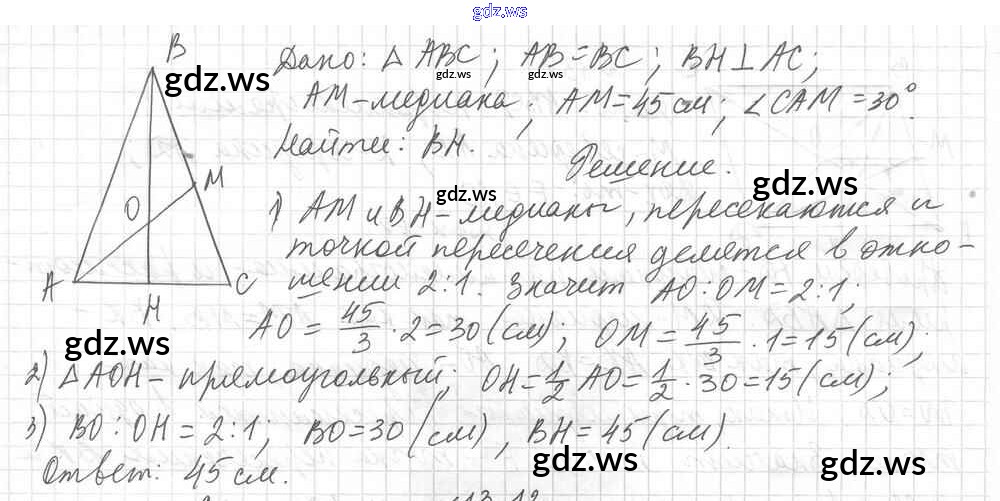 gdz.ws
B
Дано: △ ABC; AB=BC; BH⊥AC;
gdz.ws gdz.ws gdz.ws
AM-медиана; AM=45 см; ∠CAM=30°.
Найти: BH.
Решение.
M
O
gdz.ws gdz.ws
1) AM и BH-медианы, пересекаются и
точкой пересечения делятся в отно-
A C
шении 2:1. Значит AO:OM=2:1;
H
AO = 45/3 · 2=30(см); OM = 45/3 · 1=15(см);
gdz.ws
2) △AOH-прямоугольный; OH=1/2 AO=1/2·30=15(см);
3) BO:OH=2:1; BO=30(см), BH=45(см).
gdz.ws
Ответ: 45 см.
gdz.ws gdz.ws